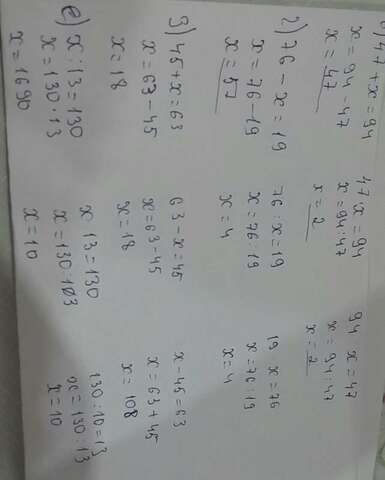 ) 47+x=94 47 x=94 94 x=47
x=94-47 x=94:47 x=94:47
x=47 x=2 x=2
2) 76-x=19 76:x=19 19 x=76
x=76-19 x=76:19 x=76:19
x=57 x=4 x=4
g) 45+x=63 63-x=45 x-45=63
x=63-45 x=63-45 x=63+45
x=18 x=18 x=108
e) x:13=130 x 13=130 130:10=13
x=130·13 x=130:13 x=130:13
x=1690 x=10 x=10